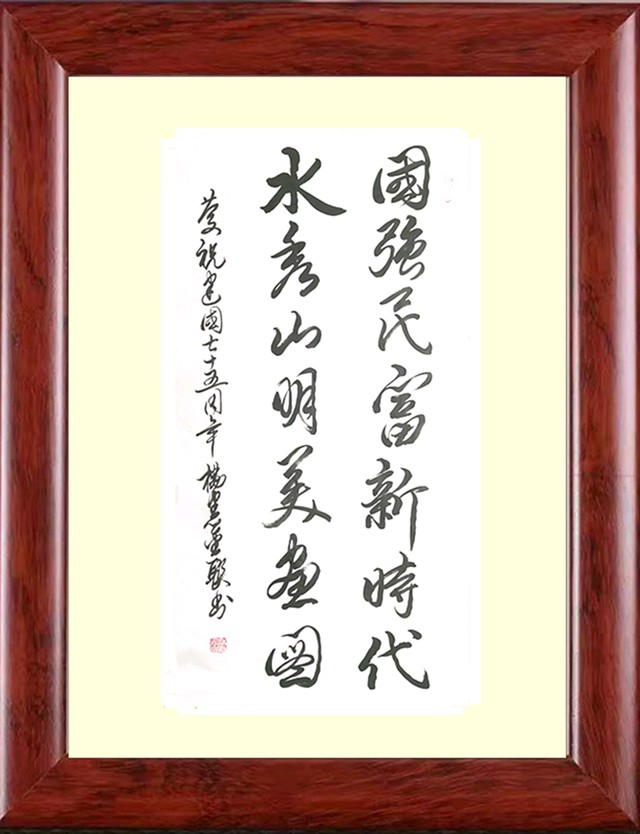 國強民富新時代
水秀山明美畫圖
慶祝建國七十五周年 楊